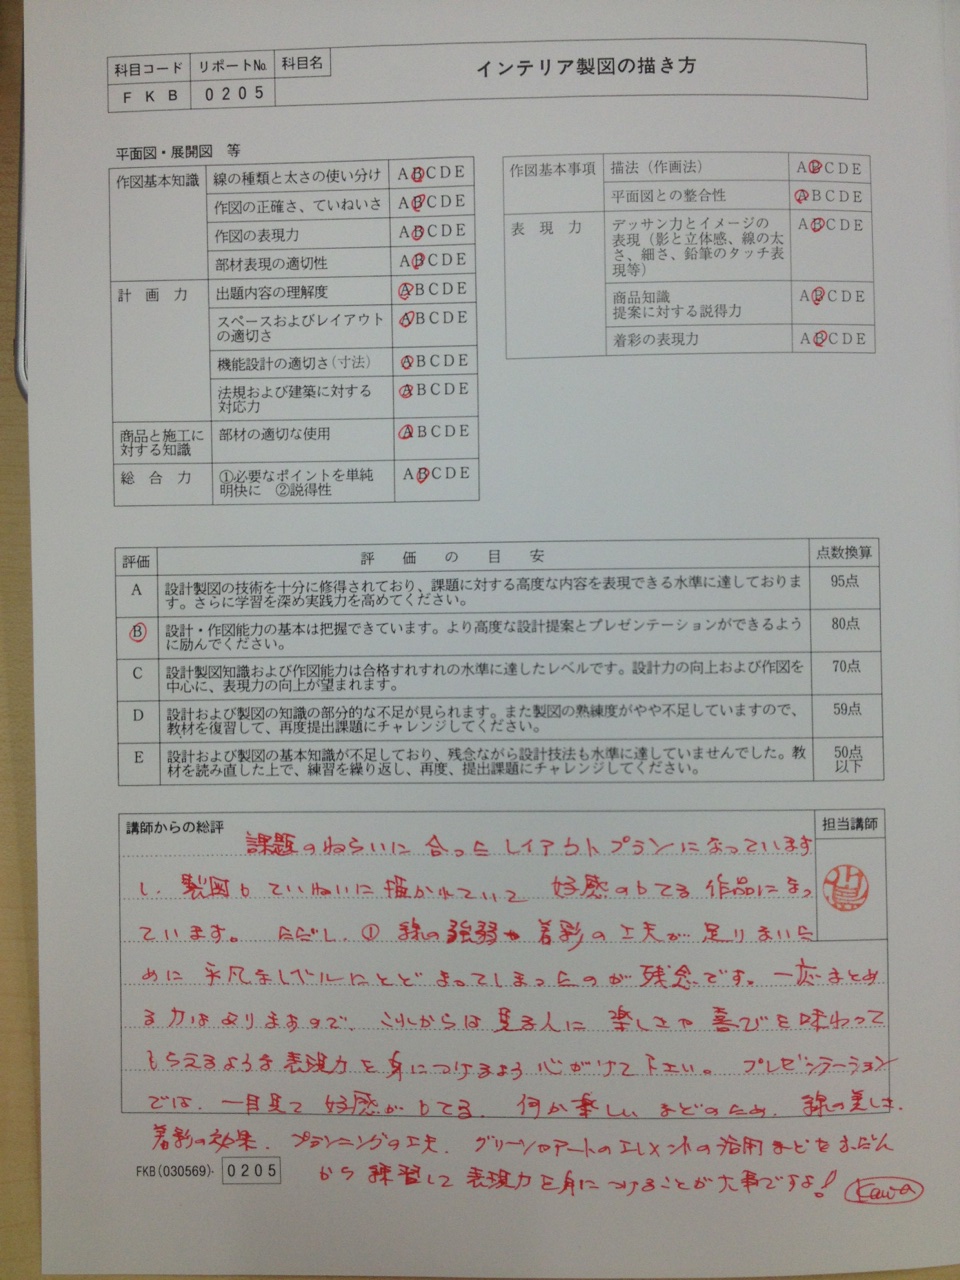 科目コード リポートNo. 科目名 インテリア製図の描き方
FKB 0205
平面図・展開図 等
作図基本知識 線の種類と太さの使い分け ABCDE
作図の正確さ、ていねいさ ABCDE
作図の表現力 ABCDE
部材表現の適切性 ABCDE
計画力 出題内容の理解度 ABCDE
スペースおよびレイアウト
の適切さ ABCDE
機能設計の適切さ(寸法) ABCDE
法規および建築に対する
対応力 ABCDE
商品と施工に
対する知識 部材の適切な使用 ABCDE
総合力 ①必要なポイントを単純
明快に ②説得性 ABCDE
作図基本事項 描法(作画法) ABCDE
平面図との整合性 ABCDE
表現力 デッサン力とイメージの ABCDE
表現(影と立体感、線の太
さ、細さ、鉛筆のタッチ表
現等)
商品知識
提案に対する説得力 ABCDE
着彩の表現力 ABCDE
評価 評価の目安 点数換算
A 設計製図の技術を十分に修得されており、課題に対する高度な内容を表現できる水準に達しておりま 95点
す。さらに学習を深め実践力を高めてください。
B 設計・作図能力の基本は把握できています。より高度な設計提案とプレゼンテーションができるよう 80点
に励んでください。
C 設計製図知識および作図能力は合格すれすれの水準に達したレベルです。設計力の向上および作図を 70点
中心に、表現力の向上が望まれます。
D 設計および製図の知識の部分的な不足が見られます。また製図の熟練度がやや不足していますので、 59点
教材を復習して、再度提出課題にチャレンジしてください。
E 設計および製図の基本知識が不足しており、残念ながら設計技法も水準に達していませんでした。教 50点
材を読み直した上で、練習を繰り返し、再度、提出課題にチャレンジしてください。 以下
講師からの総評 担当講師
課題のねらいに合ったレイアウトプランになっています
し、製図もていねいに描かれていて 好感のもてる作品になっ
ています。ただし、①線の強弱や着彩の工夫が足りないた
めに平凡なレベルにとどまってしまったのが残念です。一応まとめ
る力はありますので、これからは見る人に楽しさや喜びを味わって
もらえるような表現力を身につけるよう心がけて下さい。プレゼンテーション
では、一目見て好感がもてる、何か楽しいなどのため、線の美しさ、
着彩の効果、プランニングの工夫、グリーンやアートのエレメントの活用などをふだん
から練習して表現力を身につけることが大事ですよ! Kawa
FKB(030569)- 0205